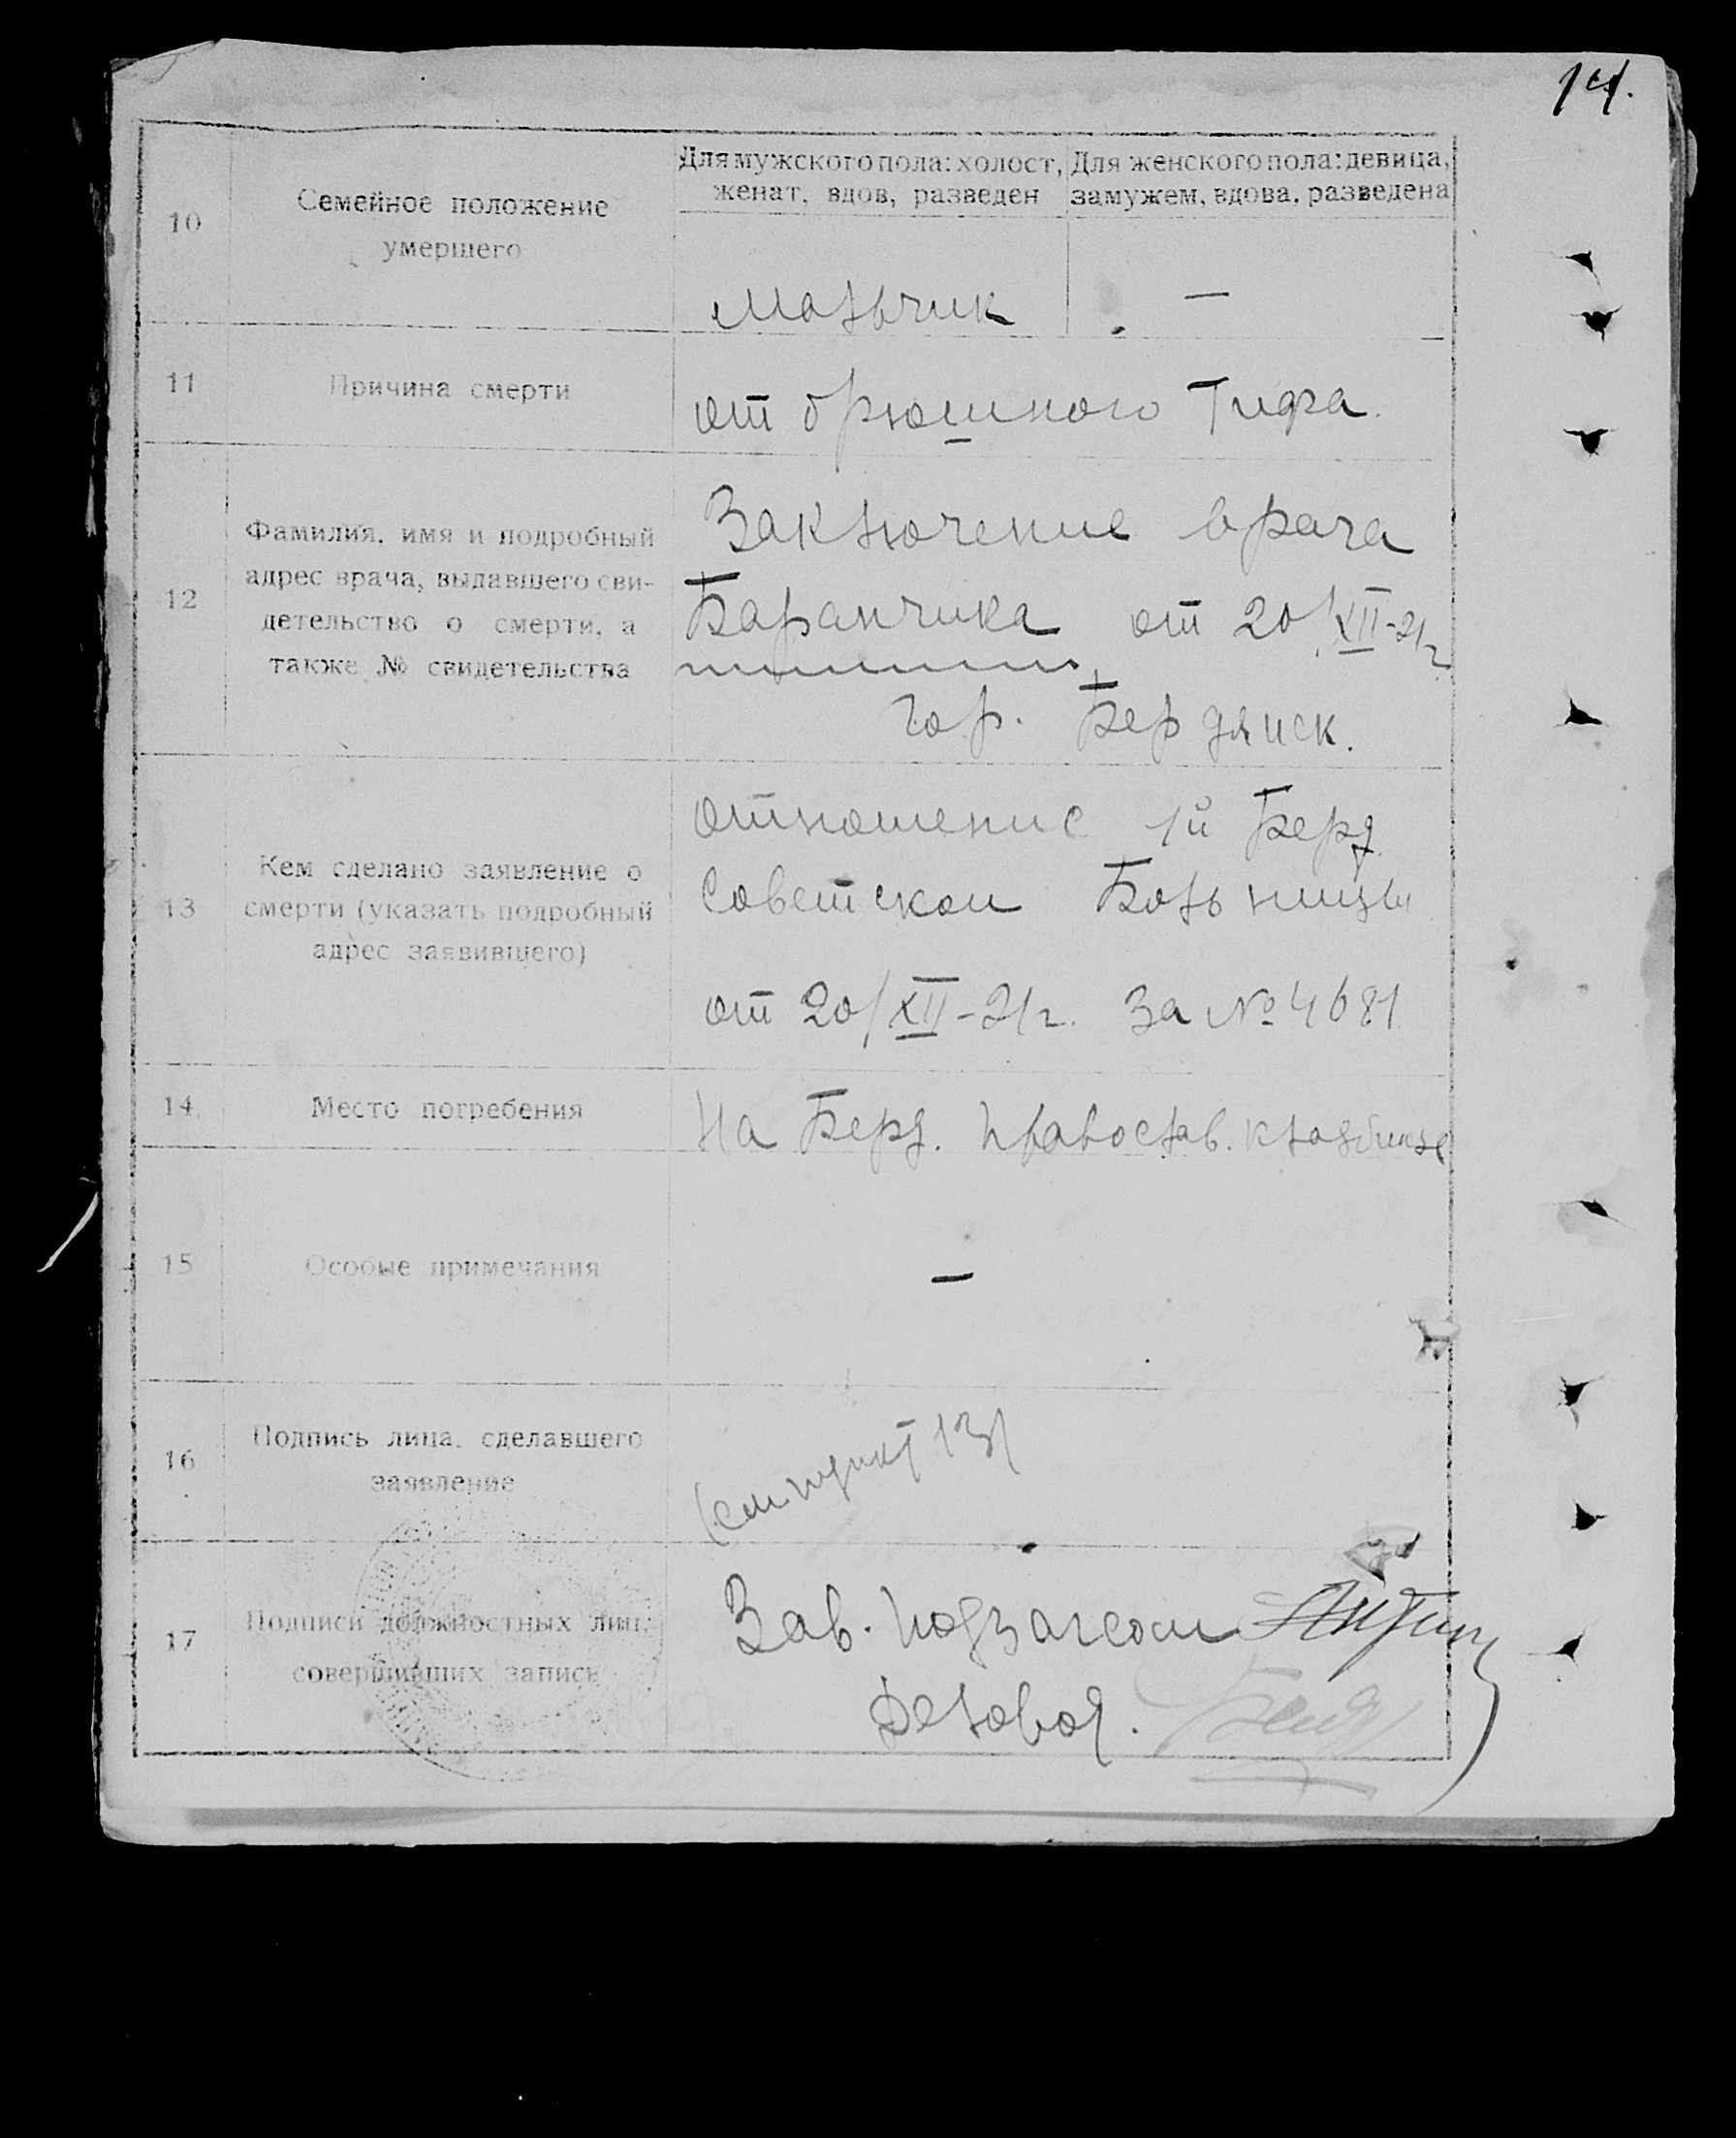 14.
10
Семейное положение
умершего
Для мужского пола: холост,
женат, вдов, разведен
Для женского пола: девица,
замужем, вдова, разведена
мальчик
—
11
Причина смерти
от брюшного Тифа.
12
Фамилия, имя и подробный
адрес врача, выдавшего сви-
детельство о смерти, а
также № свидетельства
Заключение врача
Баранчика от 20/XII-21г.
гор. Бердянск.
13
Кем сделано заявление о
смерти (указать подробный
адрес заявившего)
отношение 1й Берд.
Советской Больницы
от 20/XII-21г. за № 4681
14
Место погребения
На Берд. православ. кладбище
15
Особые примечания
—
16
Подпись лица, сделавшего
заявление
(см. пункт 13)
17
Подписи должностных лиц,
совершивших запись
Зав. подзагсом
Деловод.